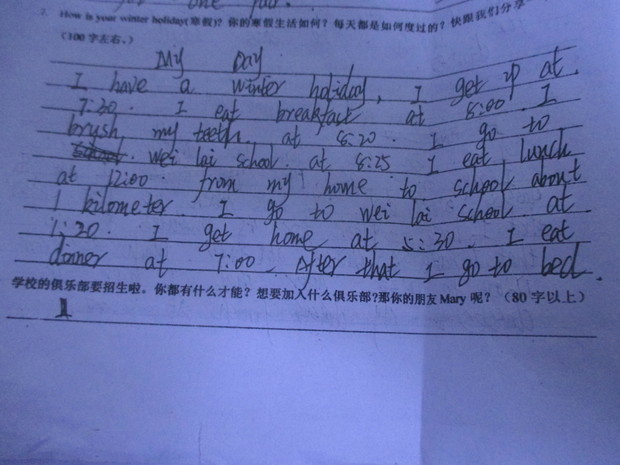 2. How is your winter holiday(寒假)? 你的寒假生活如何? 每天都是如何度过的? 快跟我们分享一
(100 字左右。)
My Day
I have a winter holiday, I get up at
7:30. I eat breakfast at 8:00. I
brush my teeth. at 8:20. I go to
wei lai school. at 8:25 I eat lunch
at 12:00. from my home to school about
1 kilometer. I go to wei lai school at
1:30. I get home at 5:30. I eat
dinner at 7:00. After that I go to bed.
学校的俱乐部要招生啦。你都有什么才能? 想要加入什么俱乐部?那你的朋友 Mary 呢? (80 字以上)
I